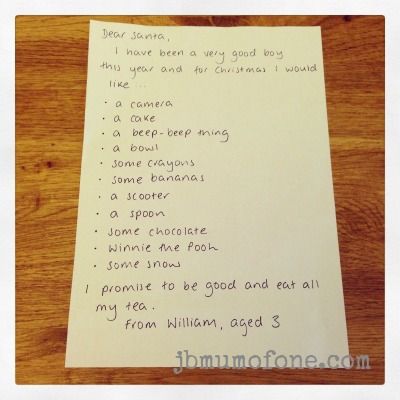 Dear Santa,
I have been a very good boy
this year and for Christmas I would
like ...
• a camera
• a cake
• a beep-beep thing
• a bowl
• some crayons
• some bananas
• a scooter
• a spoon
• some chocolate
• Winnie the Pooh
• some snow
I promise to be good and eat all
my tea.
From William, aged 3
jbmumofone.com